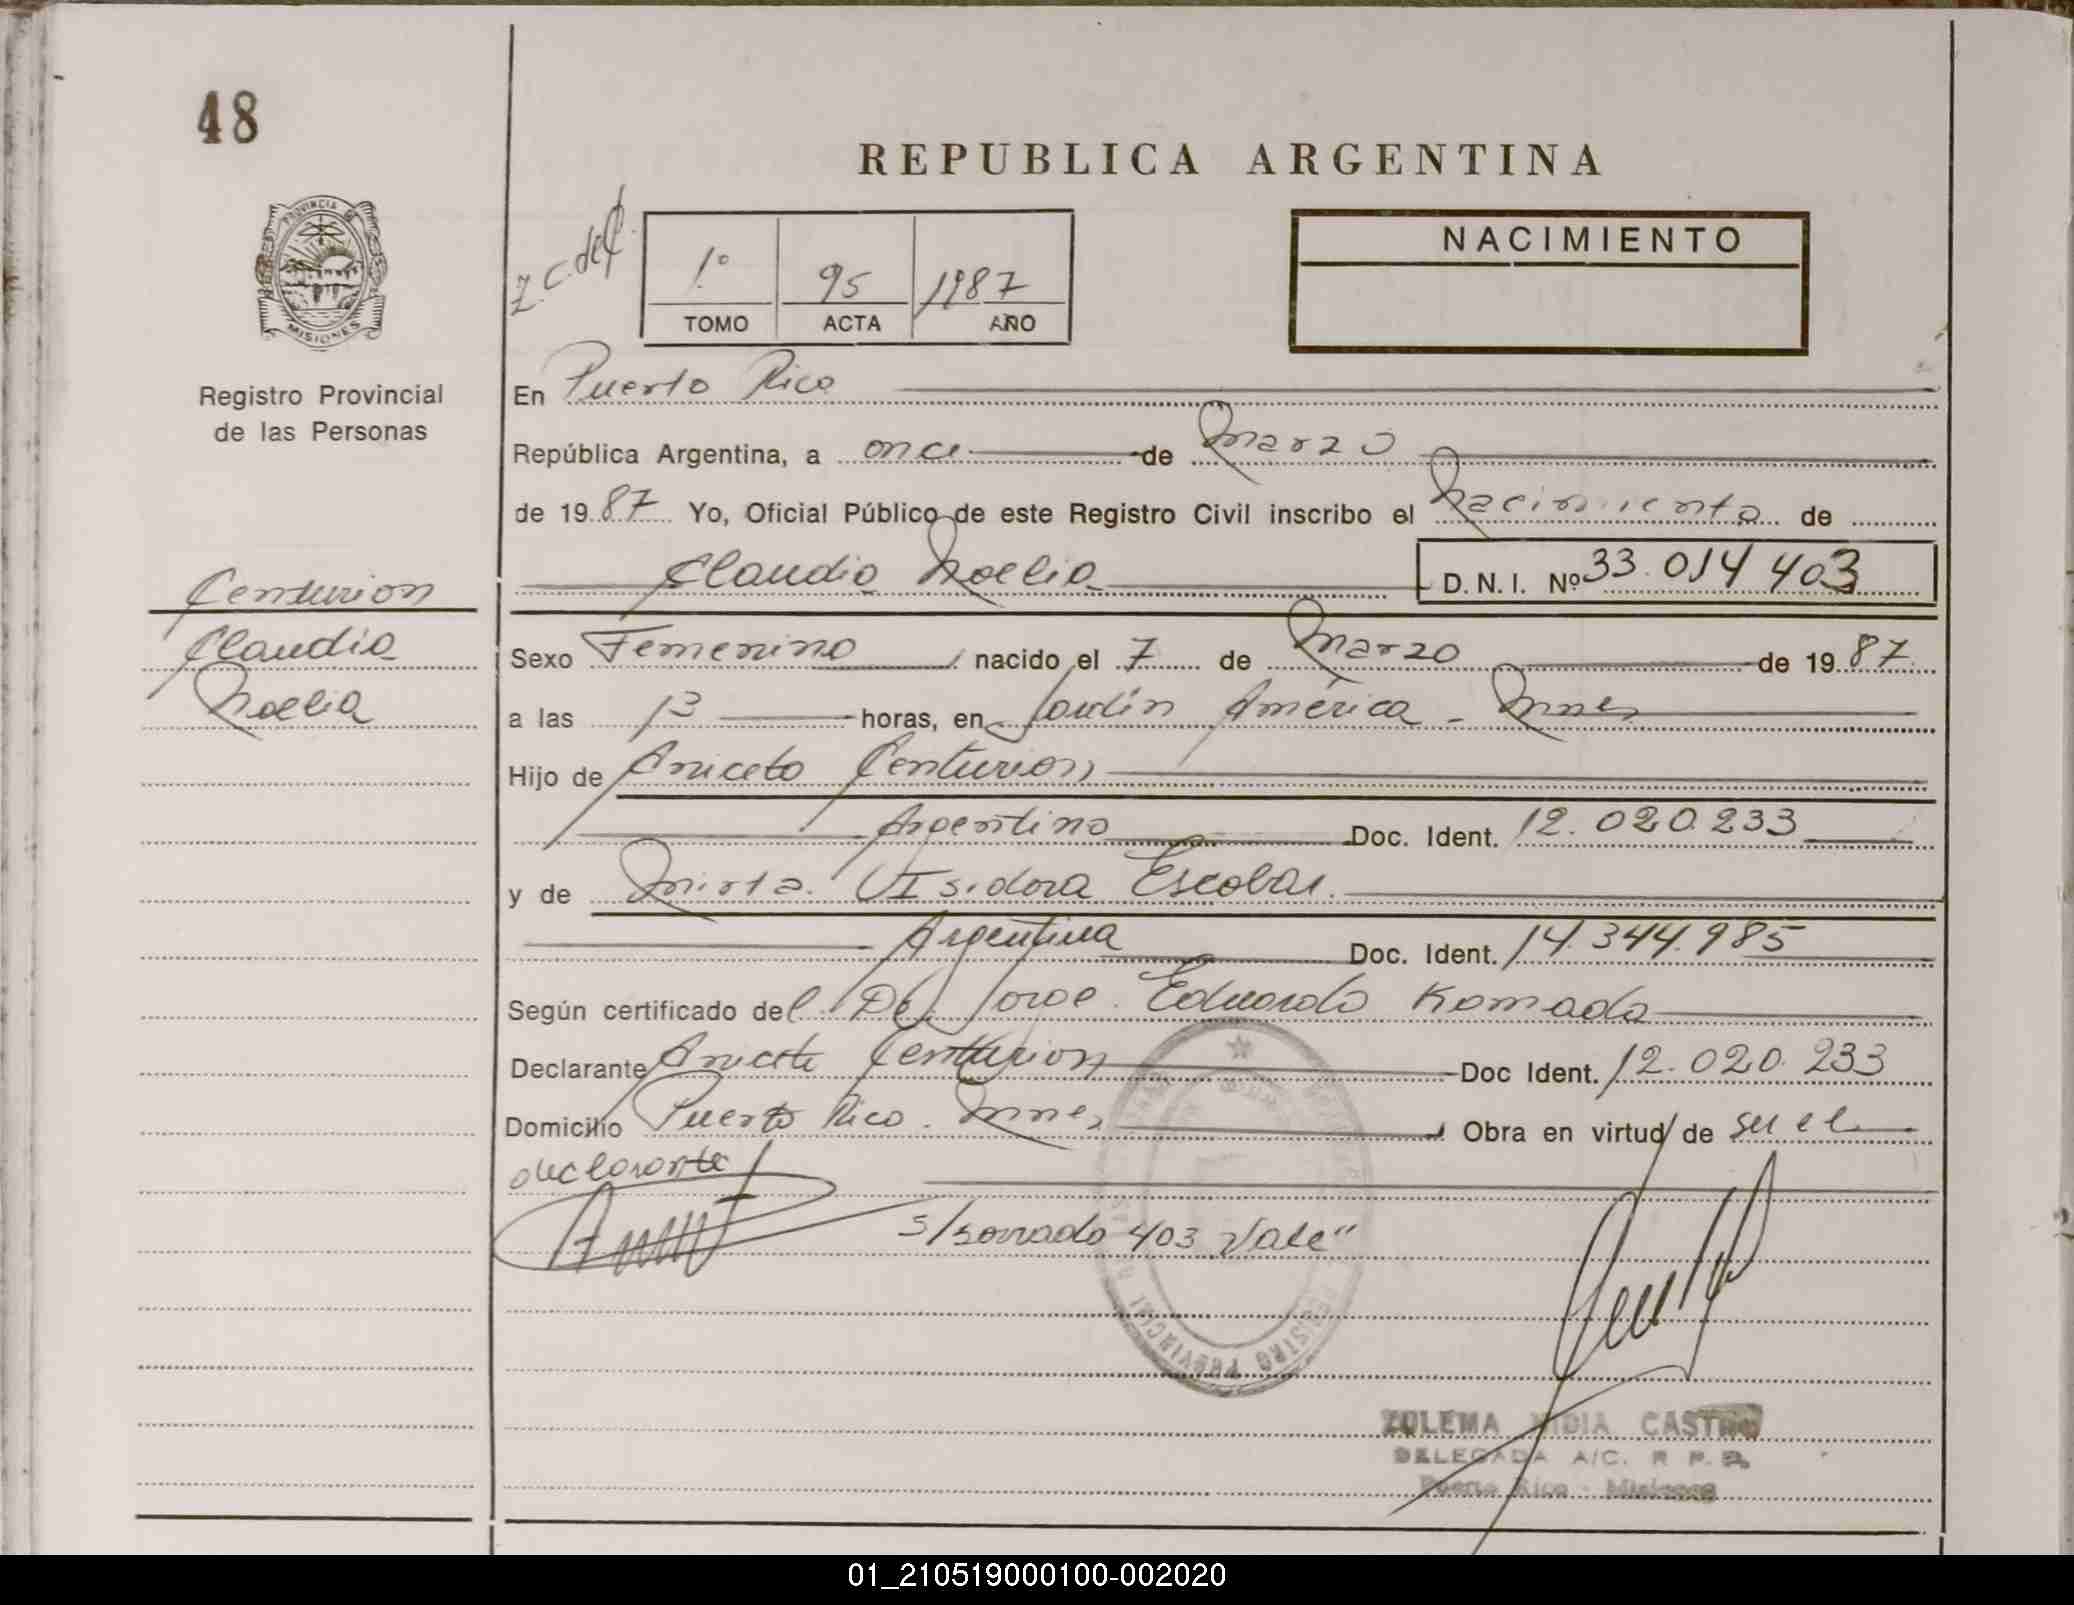 48
REPUBLICA ARGENTINA
PROVINCIA DE
MISIONES
Registro Provincial
de las Personas
Z.C. del
1º 95 1987
TOMO ACTA AÑO
NACIMIENTO
En Puerto Rico
República Argentina, a once de Marzo
de 1987 Yo, Oficial Público de este Registro Civil inscribo el Nacimiento de
Claudia Noelia D.N.I. Nº 33.014.403
Centurion
Claudia
Noelia
Sexo Femenino nacido el 7 de Marzo de 1987
a las 13 horas, en Jardín América - Mnes
Hijo de Aniceto Centurion
Argentino Doc. Ident. 12.020.233
y de Mirta Isidora Escobar.
Argentina Doc. Ident. 14.344.985
Según certificado del Dr. Jorge Eduardo Komada
Declarante Aniceto Centurion Doc Ident. 12.020.233
Domicilio Puerto Rico. Mnes Obra en virtud de su el
declarante
s/borrado 403 Vale"
REGISTRO PROVINCIAL
ZULEMA NIDIA CASTRO
DELEGADA A/C. R. P. P.
Puerto Rico - Misiones
01_210519000100-002020